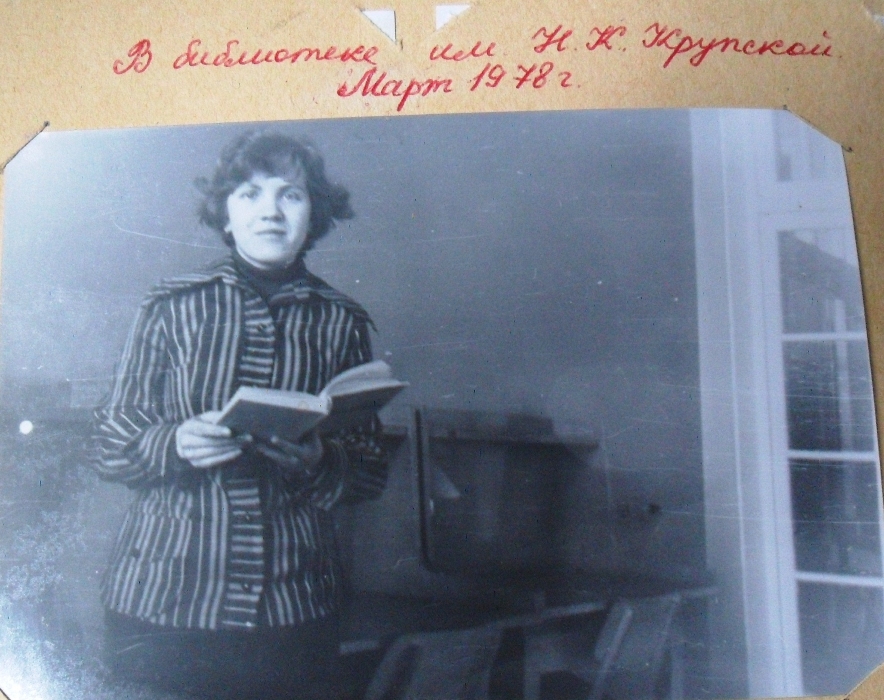 В библиотеке им. Н. К. Крупской.
Март 1978 г.